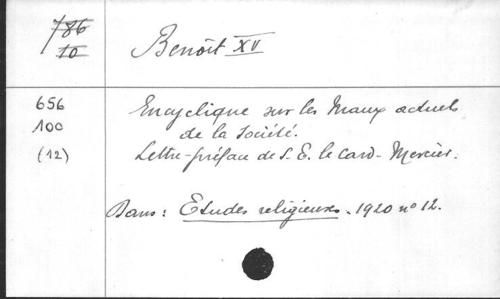 786
10
Benoît XV
656
100
(12)
Encyclique sur les Maux actuels
de la Société.
Lettre-préface de S. E. le Card. Mercier.
Dans : Etudes religieuses. 1920 nº 12.